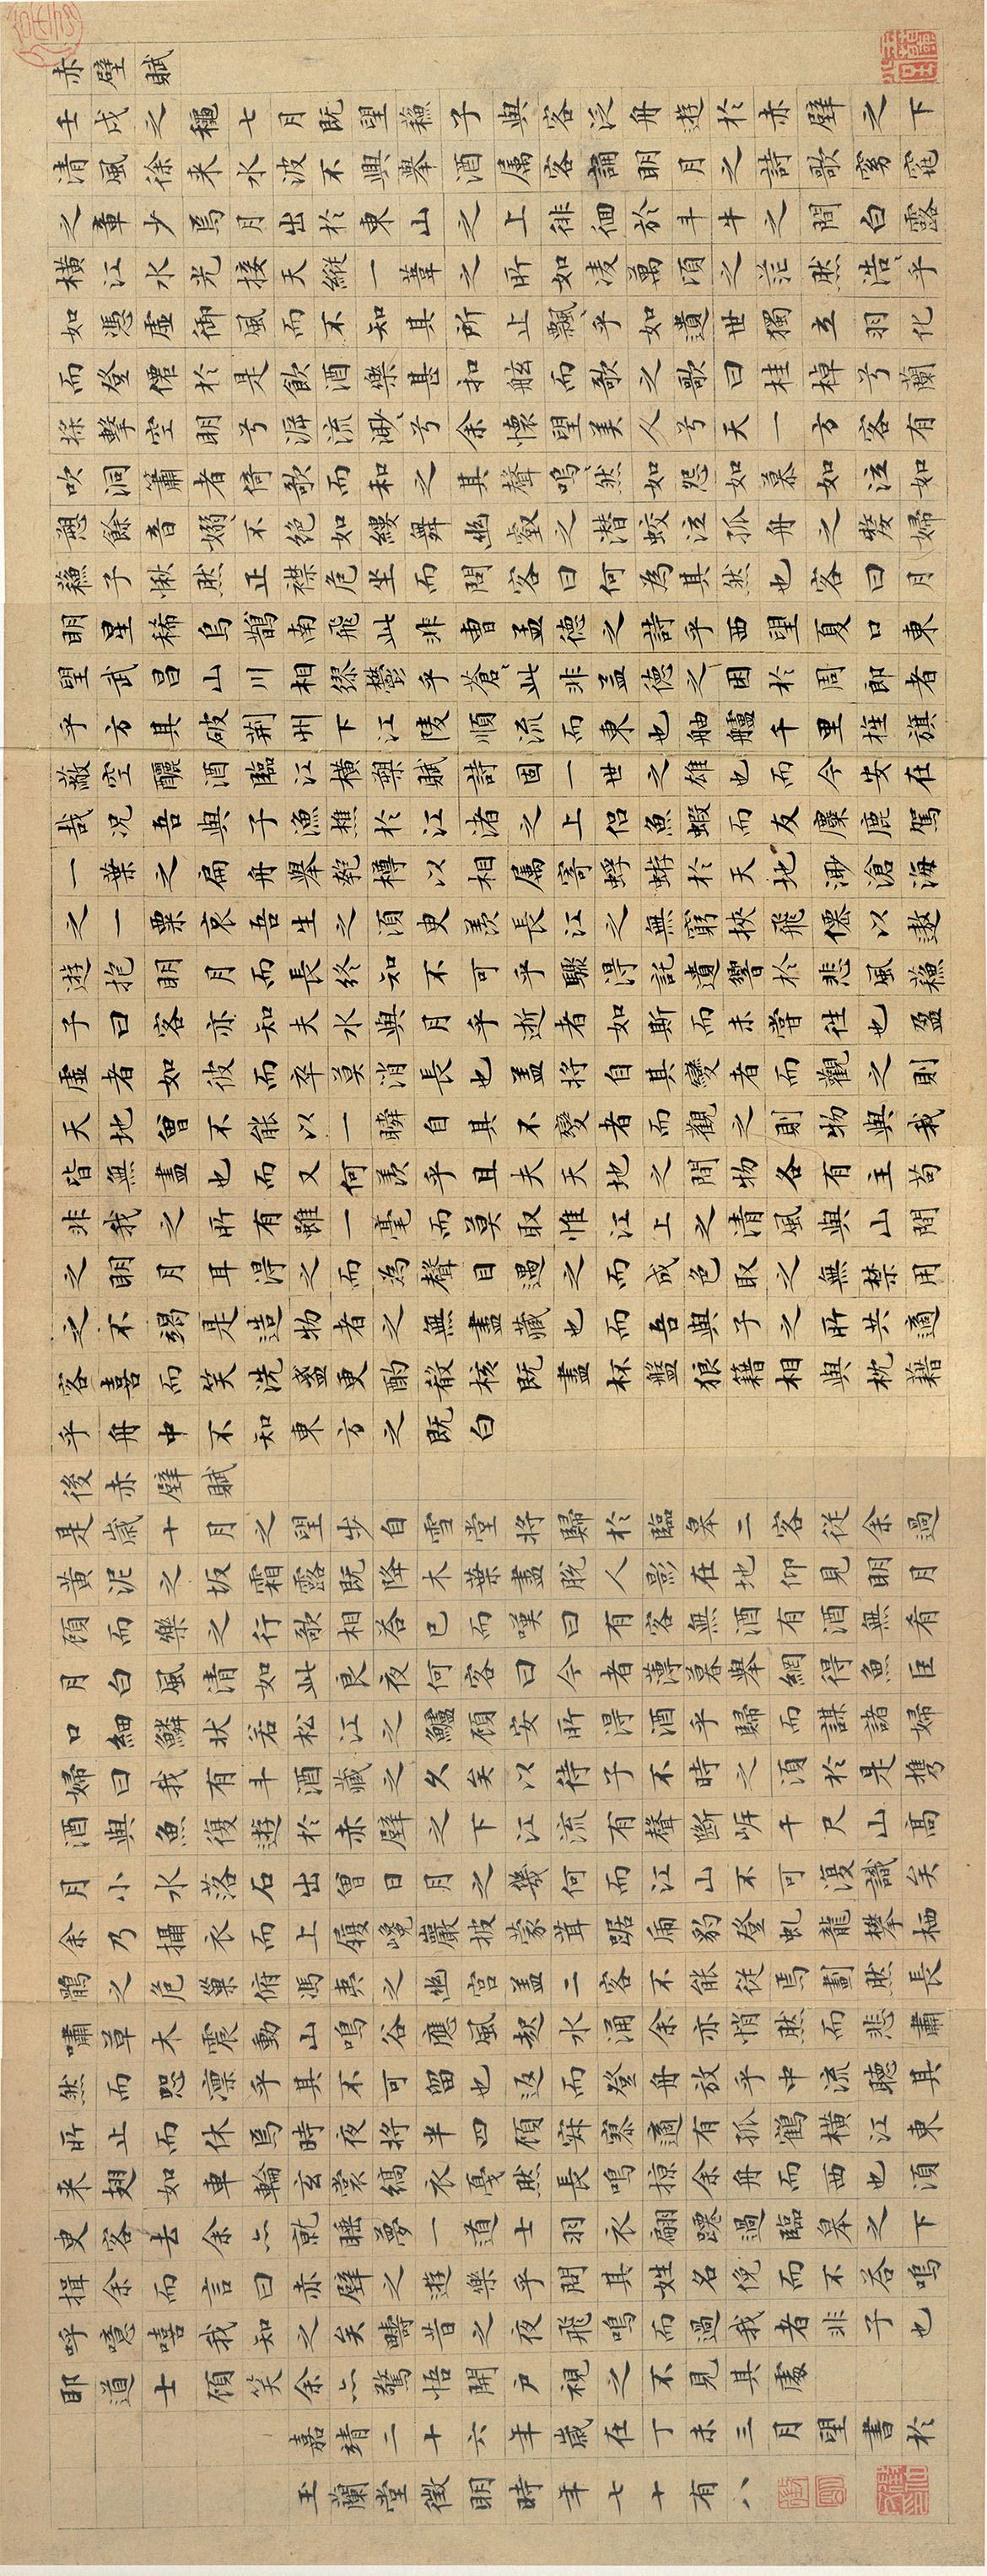 赤壁賦
壬戌之穐七月既望蘓子與客泛舟遊於赤壁之下
清風徐来水波不興舉酒属客誦明月之詩歌窈窕
之章少焉月出於東山之上徘徊於斗牛之間白露
橫江水光接天縱一葦之所如凌萬頃之茫然浩〻乎
如憑虛御風而不知其所止飄〻乎如遺世獨立羽化
而登僊於是飲酒樂甚扣舷而歌之歌曰桂棹兮蘭
槳擊空明兮泝流光渺〻兮余懷望美人兮天一方客有
吹洞簫者倚歌而和之其聲嗚〻然如怨如慕如泣如
愬餘音嫋〻不絕如縷舞幽壑之潜蛟泣孤舟之嫠婦
蘓子愀然正襟危坐而問客曰何為其然也客曰月
明星稀烏鵲南飛此非曹孟德之詩乎西望夏口東
望武昌山川相繆鬱乎蒼〻此非孟德之困於周郎者
乎方其破荆州下江陵順流而東也舳艫千里旌旗
蔽空釃酒臨江橫槊賦詩固一世之雄也而今安在
哉况吾與子漁樵於江渚之上侣魚蝦而友麋鹿駕
一葉之扁舟舉匏樽以相属寄蜉蝣於天地渺滄海
之一粟哀吾生之須臾羨長江之無窮挾飛僊以遨
遊抱明月而長終知不可乎驟得託遺響於悲風蘓
子曰客亦知夫水與月乎逝者如斯而未嘗往也盈
虛者如彼而卒莫消長也盖將自其變者而觀之則
天地曾不能以一瞬自其不變者而觀之則物與我
皆無盡也而又何羨乎且夫天地之間物各有主苟
非我之所有雖一毫而莫取惟江上之清風與山間
之明月耳得之而為聲目遇之而成色取之無禁用
之不竭是造物者之無盡藏也而吾與子之所共適
客喜而笑洗盞更酌肴核既盡杯盤狼籍相與枕藉
乎舟中不知東方之既白
後赤壁賦
是歲十月之望步自雪堂將歸於臨皋二客從余過
黃泥之坂霜露既降木葉盡脫人影在地仰見明月
顧而樂之行歌相答已而嘆曰有客無酒有酒無肴
月白風清如此良夜何客曰今者薄暮舉網得魚巨
口細鱗狀若松江之鱸顧安所得酒乎歸而謀諸婦
婦曰我有斗酒藏之久矣以待子不時之須於是携
酒與魚復遊於赤壁之下江流有聲斷岸千尺山高
月小水落石出曾日月之幾何而江山不可復識矣
余乃攝衣而上履巉巖披蒙茸踞虎豹登虬龍攀栖
鶻之危巢俯馮夷之幽宮盖二客不能從焉劃然長
嘯草木震動山鳴谷應風起水涌余亦悄然而悲肅
然而恐凛乎其不可留也返而登舟放乎中流聽其
所止而休焉時夜將半四顧寂寥適有孤鶴橫江東
来翅如車輪玄裳縞衣戛然長鳴掠余舟而西也須
臾客去余亦就睡夢一道士羽衣翩躚過臨皋之下
揖余而言曰赤壁之遊樂乎問其姓名俛而不答嗚
呼噫嘻我知之矣疇昔之夜飛鳴而過我者非子也
耶道士顧笑余亦驚悟開戶視之不見其處
嘉靖二十六年歲在丁未三月望書於
玉蘭堂徵明時年七十有八